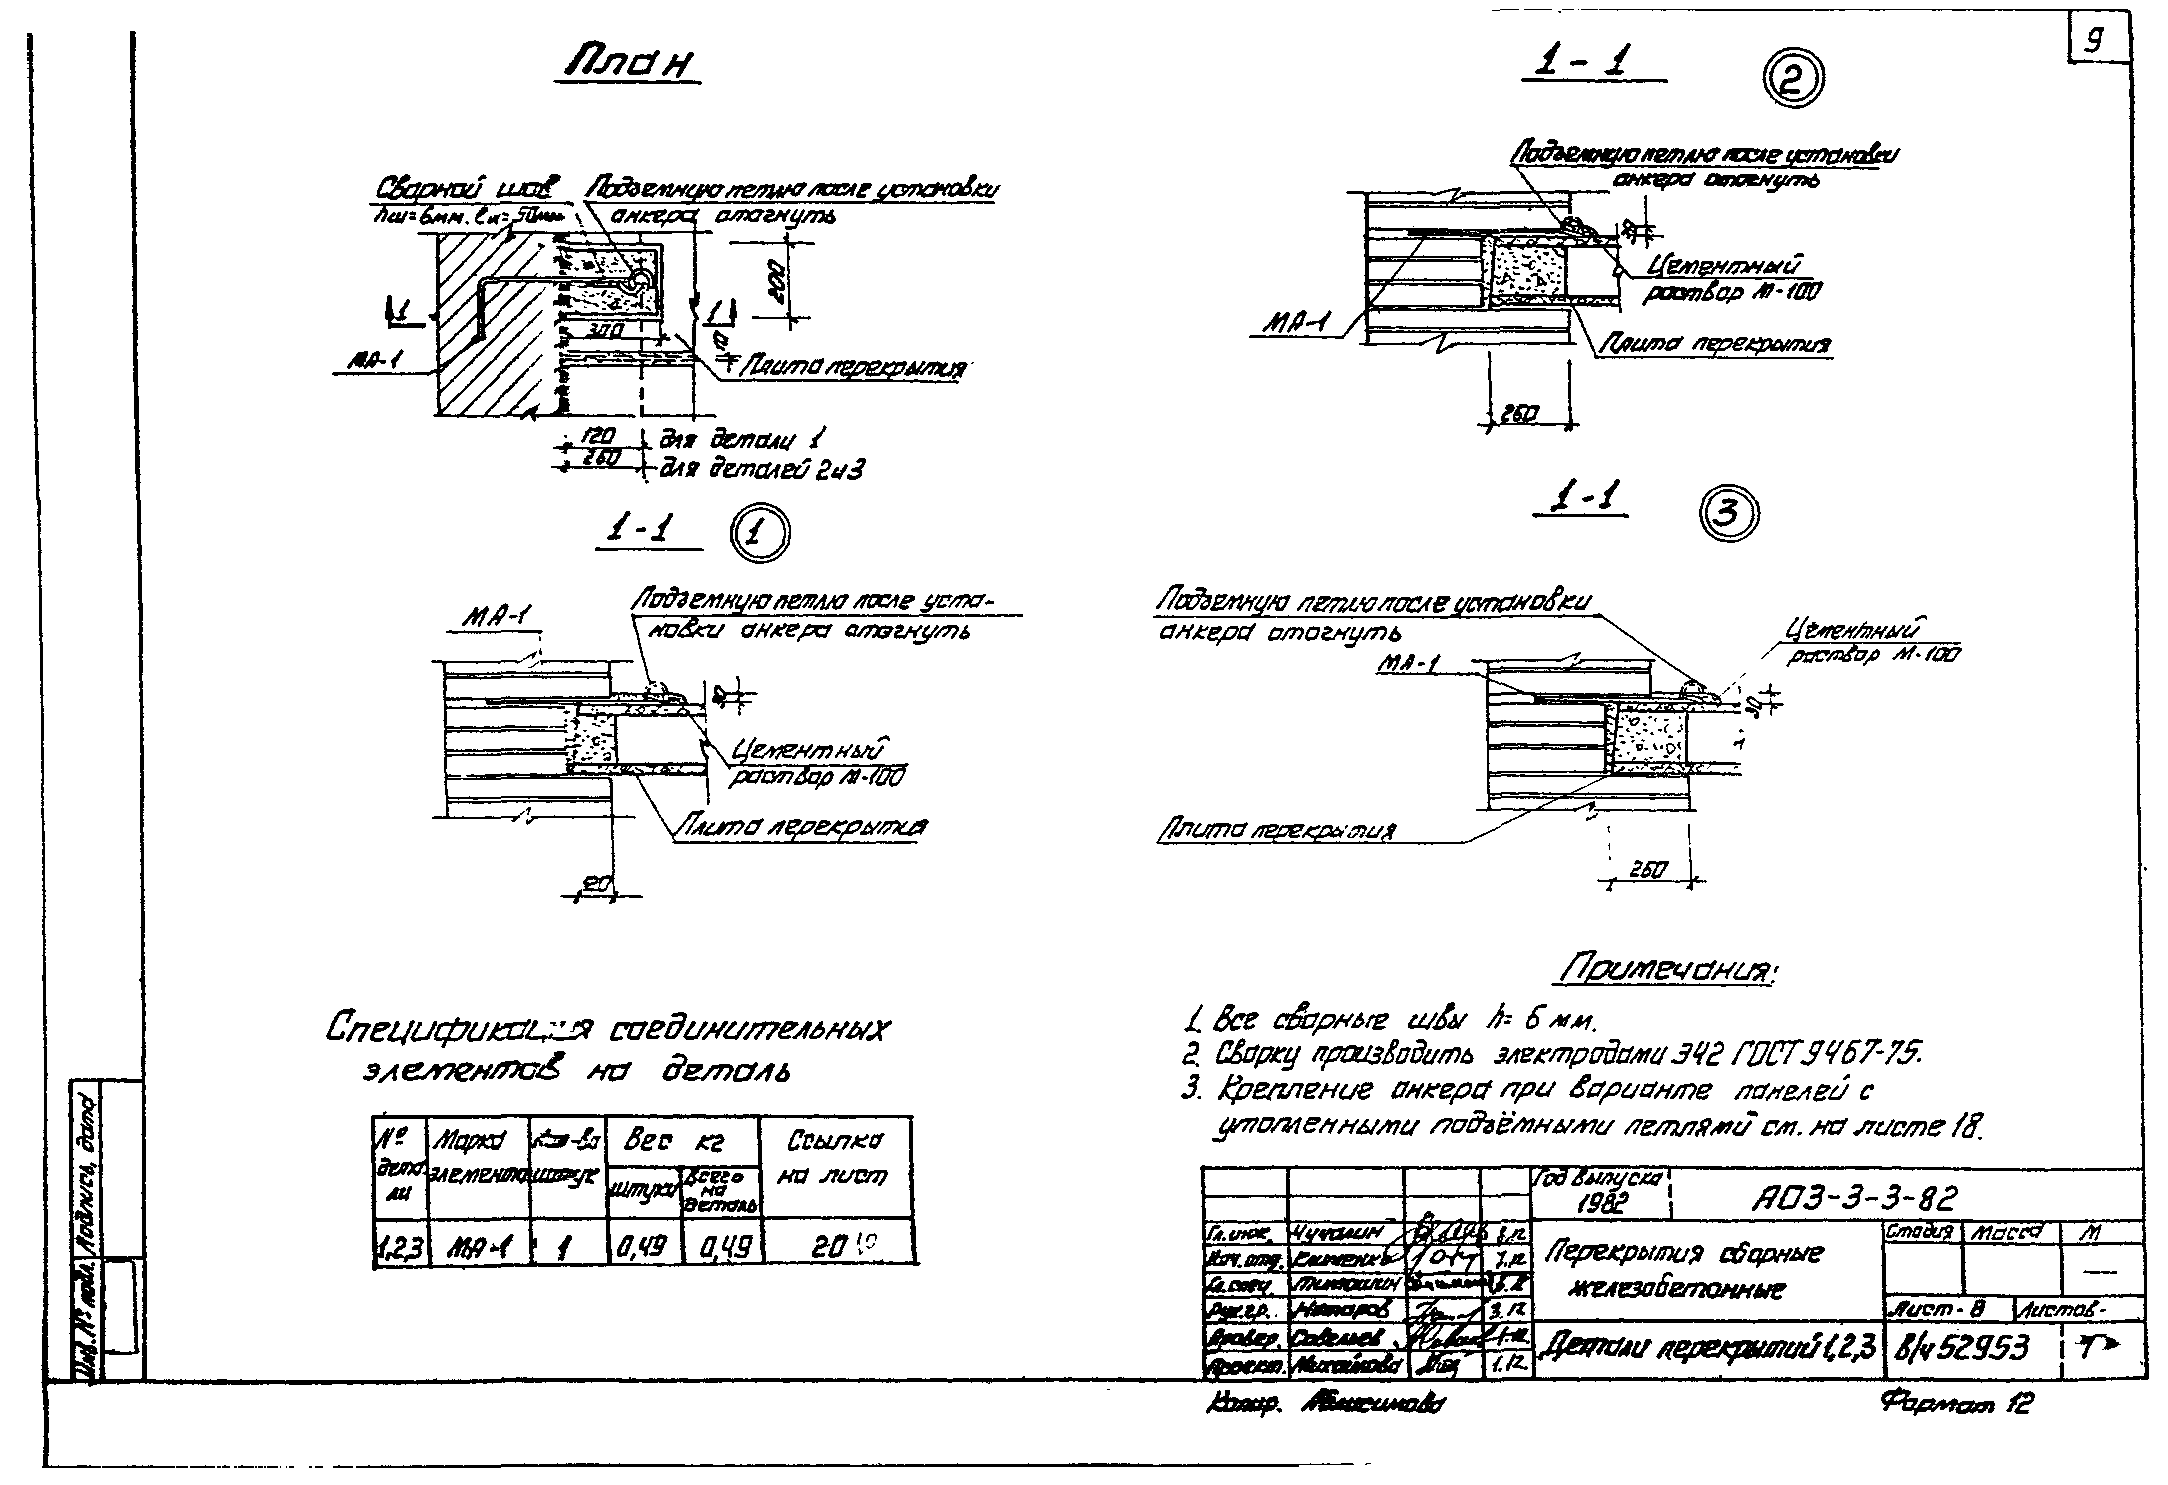 9
План
Сварной шов
hш=6мм. lш=50мм
Подъемную петлю после установки
анкера отогнуть
200
1
1
300
МА-1
Плита перекрытия
120 для детали 1
260 для деталей 2и3
1-1 1
МА-1
Подъемную петлю после уста-
новки анкера отогнуть
30
Цементный
раствор М-100
Плита перекрытия
1-1 2
Подъемную петлю после установки
анкера отогнуть
Цементный
раствор М-100
МА-1
Плита перекрытия
260
1-1 3
Подъемную петлю после установки
анкера отогнуть
МА-1
Цементный
раствор М-100
30
Плита перекрытия
260
Спецификация соединительных
элементов на деталь
№ детали
Марка элемента
Кол-во штук
Вес кг
штуки
Всего на деталь
Ссылка на лист
1,2,3 МА-1 1 0,49 0,49 20
Примечания:
1. Все сварные швы h= 6 мм.
2. Сварку производить электродами Э42 ГОСТ 9467-75.
3. Крепление анкера при варианте панелей с
утопленными подъёмными петлями см. на листе 18.
Год выпуска
1982
АОЗ-3-3-82
Гл. инж. Чучалин
Нач. отд. Клименко
Гл. спец.
Рук. гр. Назаров
Провер. Савельев
Проект. Михайлова 1.12
Перекрытия сборные
железобетонные
Стадия Масса М
Лист- 8 Листов-
Детали перекрытий 1,2,3
В/ч 52953
Копир.
Формат 12
Подпись, дата
Инв. № подл.